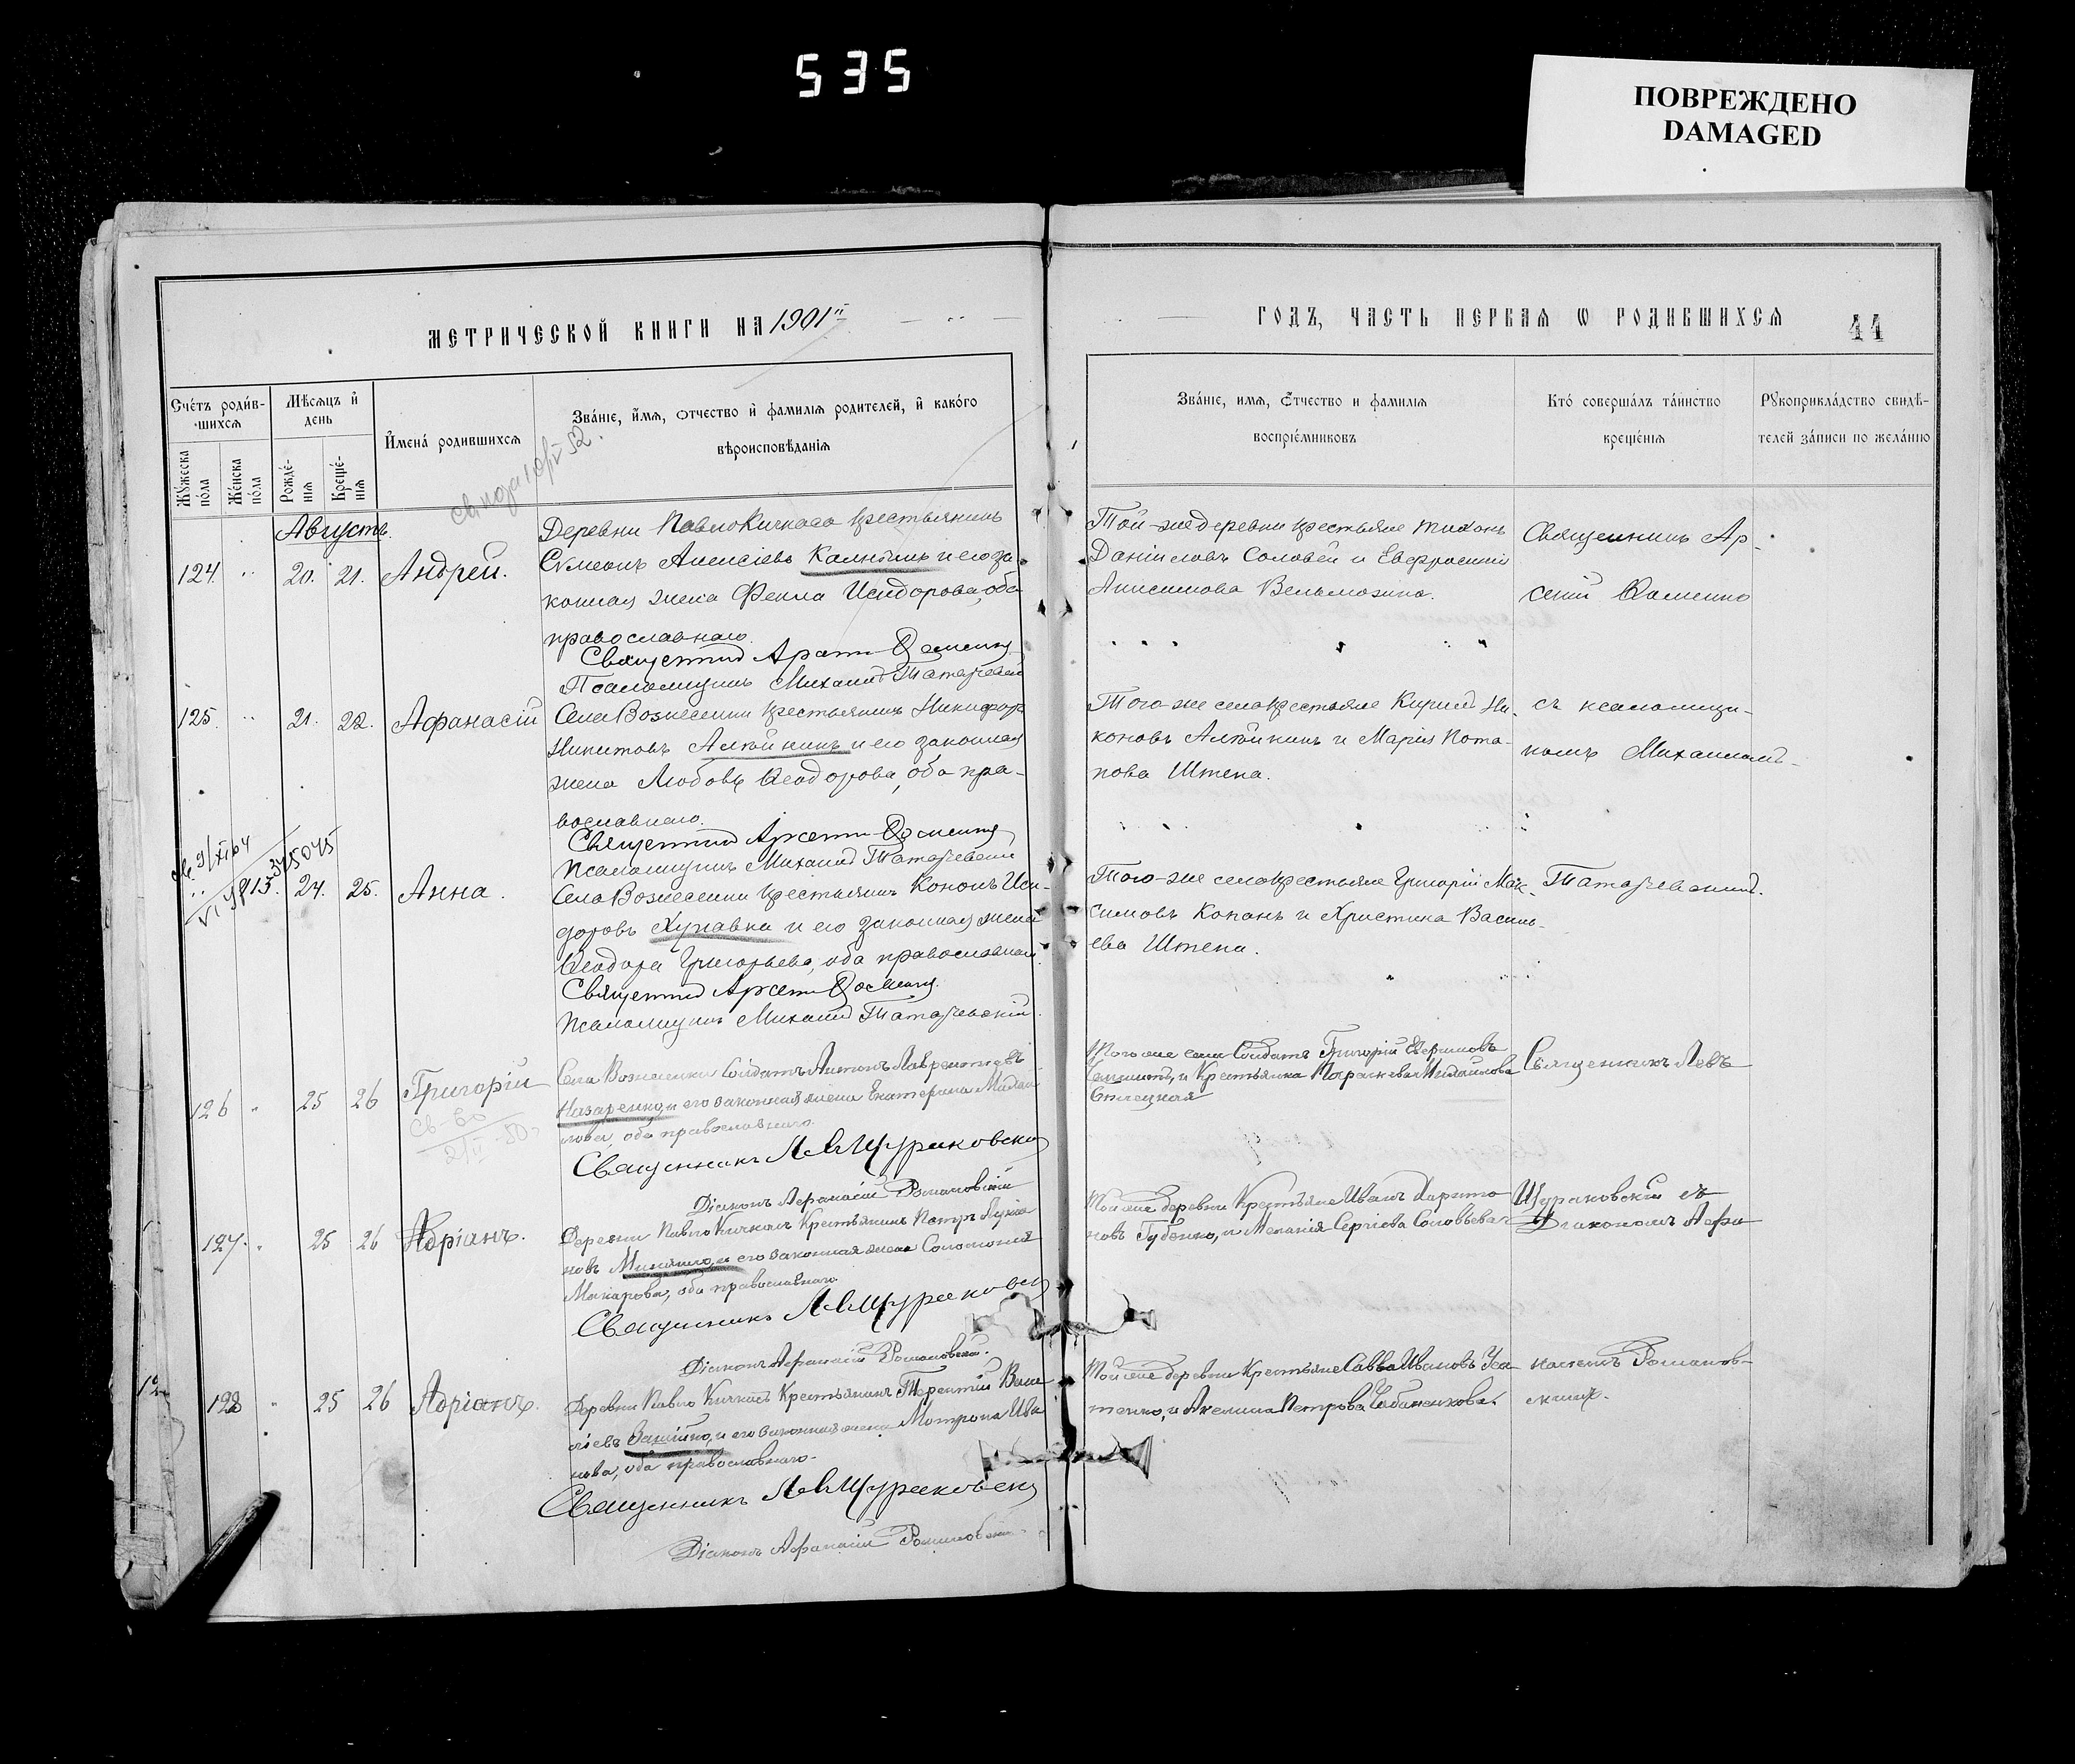 535
ПОВРЕЖДЕНО
DAMAGED
МЕТРИЧЕСКОЙ КНИГИ НА 1901й
ГОДЪ, ЧАСТЬ ПЕРВАЯ Ѡ РОДИВШИХСЯ
44
Счетъ родив-
шихся
Мужеска пола
Женска пола
Мѣсяцъ и день
Рожде-
нія
Креще-
нія
Имена родившихся
Званіе, имя, отчество и фамилія родителей, и какого
вѣроисповѣданія
Званіе, имя, Отчество и фамилія
воспріемниковъ
Кто совершалъ таинство
крещенія
Рукоприкладство свидѣ-
телей записи по желанію
Августъ.
124. 20. 21. Андрей.
Деревни Павло Кичкаса крестьянинъ
Сѵмеонъ Алексіевъ и его за-
конная жена Фекла Исидорова, оба
православнаго.
Псаломщикъ Михаилъ Татаревскій
Той-же деревни крестьяне Тихонъ
Даніиловъ Соловей и Евфросинія
Анисимова Вельможина.
Священникъ Ар-
сеній
125. 21. 22. Афанасій
Села Вознесенки крестьянинъ Никифоръ
Никитовъ Алейникъ и его законная
жена Любовь Ѳеодорова, оба пра-
вославнаго.
Псаломщикъ Михаилъ Татаревскій
Того-же села крестьяне Кирилъ Ни-
коновъ Алейникъ и Марія Пота-
пова Штепа.
съ псаломщи-
комъ Михаиломъ
375045
13. 24. 25. Анна.
Села Вознесенки крестьянинъ Кононъ Иси-
доровъ и его законная жена
Ѳеодора Григорьева, оба православнаго.
Псаломщикъ Михаилъ Татаревскій.
Того-же села крестьяне Григорій Мак-
симовъ Копанъ и Христина Василь-
ева Штепа.
Татаревскимъ.
126 25 26 Григорій
Села Вознесенки Солдатъ Антонъ Лаврентіевъ
Назаренко, и его законная жена Екатерина Михаи-
лова, оба православнаго.
Священникъ Л. Щураковскій
Діаконъ Афанасій Романовскій
Того же села Солдатъ Григорій
и Крестьянка Параскева Михайлова
Священникъ Левъ
127. 25 26 Адріанъ.
Деревни Павло Кичкасъ Крестьянинъ Петръ Лукіа-
новъ и его законная жена Соломонія
Макарова, оба православнаго
Священникъ Л. Щураковскій
Діаконъ Афанасій Романовскій.
Той же деревни Крестьяне Иванъ Харито-
новъ Губенко, и Меланія Сергіева Соловьева
Щураковскій съ
Діакономъ Афа-
128 25 26 Адріанъ.
Деревни Павло Кичкасъ Крестьянинъ Терентій Васи-
ліевъ и его законная жена Матрона Ива-
нова, оба православнаго.
Священникъ Л. Щураковскій
Діаконъ Афанасій Романовскій
Той же деревни Крестьяне Савва Ивановъ Уса-
тенко, и Акелина Петрова Чабаненкова.
насіемъ Романов-
скимъ.